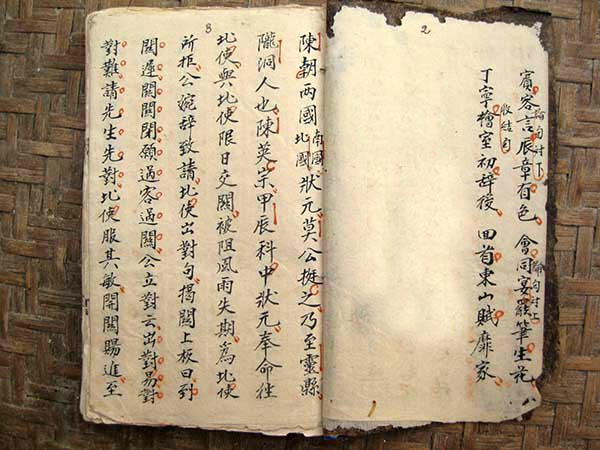 2
賓客言辰章有色 會同宴罷筆生花
收結句
丁寧檜室初辞後 回首東山賦靡家
3
陳朝兩國南國北國狀元莫公挺之乃至靈縣
隴洞人也陳英宗甲辰科中狀元奉命往
北使與北使限日交關被阻風雨失期為北使
所拒公宛辞致請北使出對句揭關上板曰到
關遲關關閉願過客過關公立對云出對易對
對難請先生先對北使服其敏開關賜進至